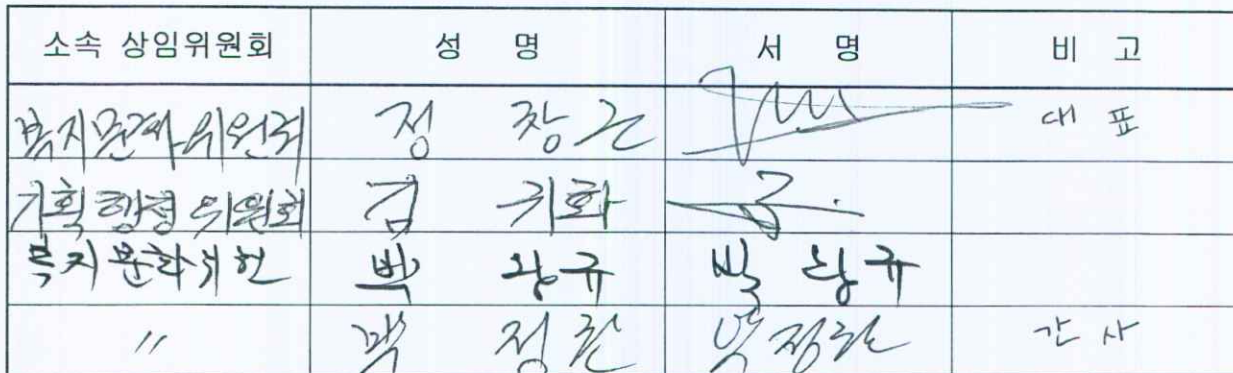 소속 상임위원회 성 명 서 명 비 고
복지문화위원회 정 창근 대 표
기획행정위원회 김 귀화
복지문화위원 박 왕규 박 왕규
〃 박 정환 박정환 간 사